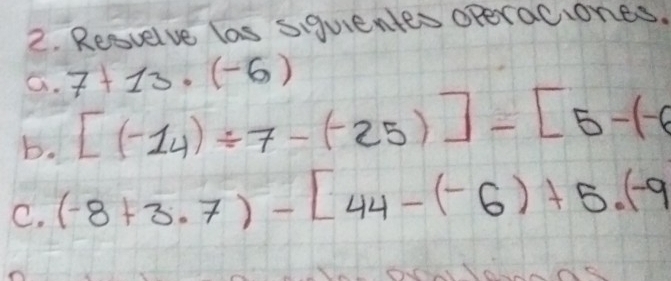 2. Resuelve las siguientes operaciones.
a. 7 + 13 . (-6)
b. [(-14) ÷ 7 - (-25)] - [5 - (-6
c. (-8 + 3 . 7) - [44 - (-6) + 5 . (-9